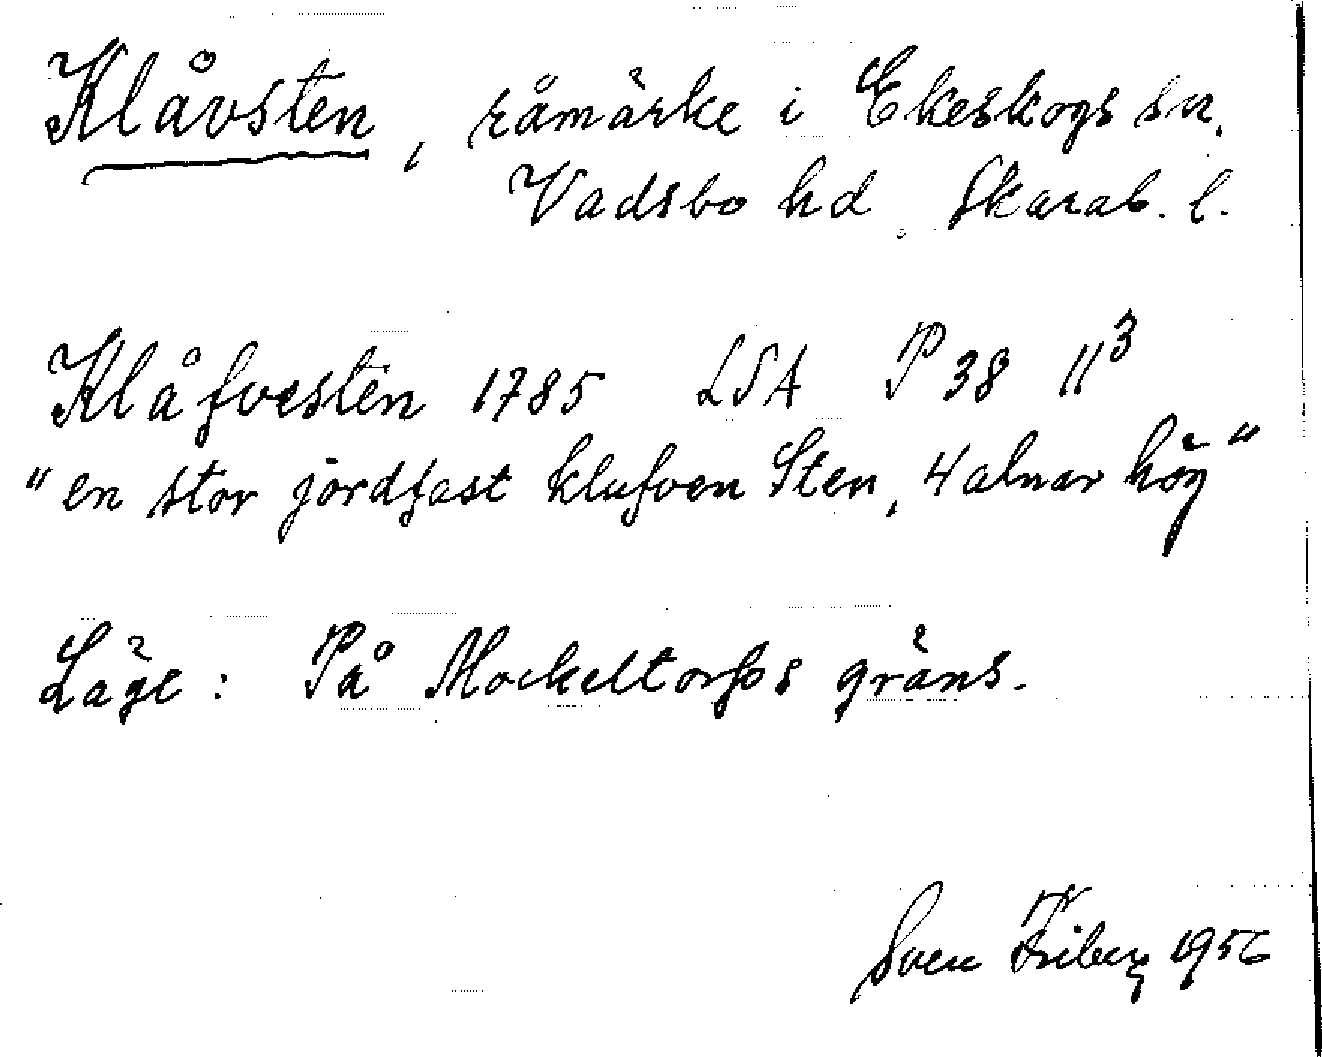 Klåvsten, råmärke i Ekeskogs sn.
Vadsbo hd. Skarab. l.
Klåfvesten 1785 LSA P38 11³
"en stor jordfast klufven Sten, 4 alnar hög"
Läge: På Mockeltorps gräns.
Sven Friberg 1956